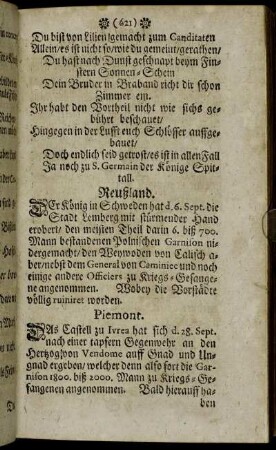 (621)
Du bist von Lilien gemacht zum Canditaten
Allein/es ist nicht so/wie du gemeint/gerathen/
Du hast nach Dunst geschnapt beym Fin-
stern Sonnen-Schein
Dein Bruder in Braband richt dir schon
Zimmer ein.
Ihr habt den Vortheil nicht wie sichs ge-
bührt beschauet/
Hingegen in der Lufft euch Schlösser auffge-
bauet/
Doch endlich seid getrost/es ist in allen Fall
Ja noch zu S. Germain der Könige Spit-
tall.
Reußland.
DEr König in Schweden hat d. 6. Sept. die
Stadt Lemberg mit stürmender Hand
erobert/ den meisten Theil darin 6. biß 700.
Mann bestandenen Polnischen Garnison ni-
dergemacht/ den Weywoden von Calisch a-
ber/nebst dem General von Caminiec und noch
eine andere Officiers zu Kriegs-Gefange-
ne angenommen. Wobey die Vorstädte
völlig ruiniret worden.
Piemont.
DAs Castell zu Ivrea hat sich d. 28. Sept.
nach einer tapfern Gegenwehr an den
Hertzog/von Vendome auff Gnad und Un-
gnad ergeben/ welcher denn also fort die Gar-
nison 1800. biß 2000. Mann zu Kriegs-Ge-
fangenen angenommen. Bald hierauff ha-
ben